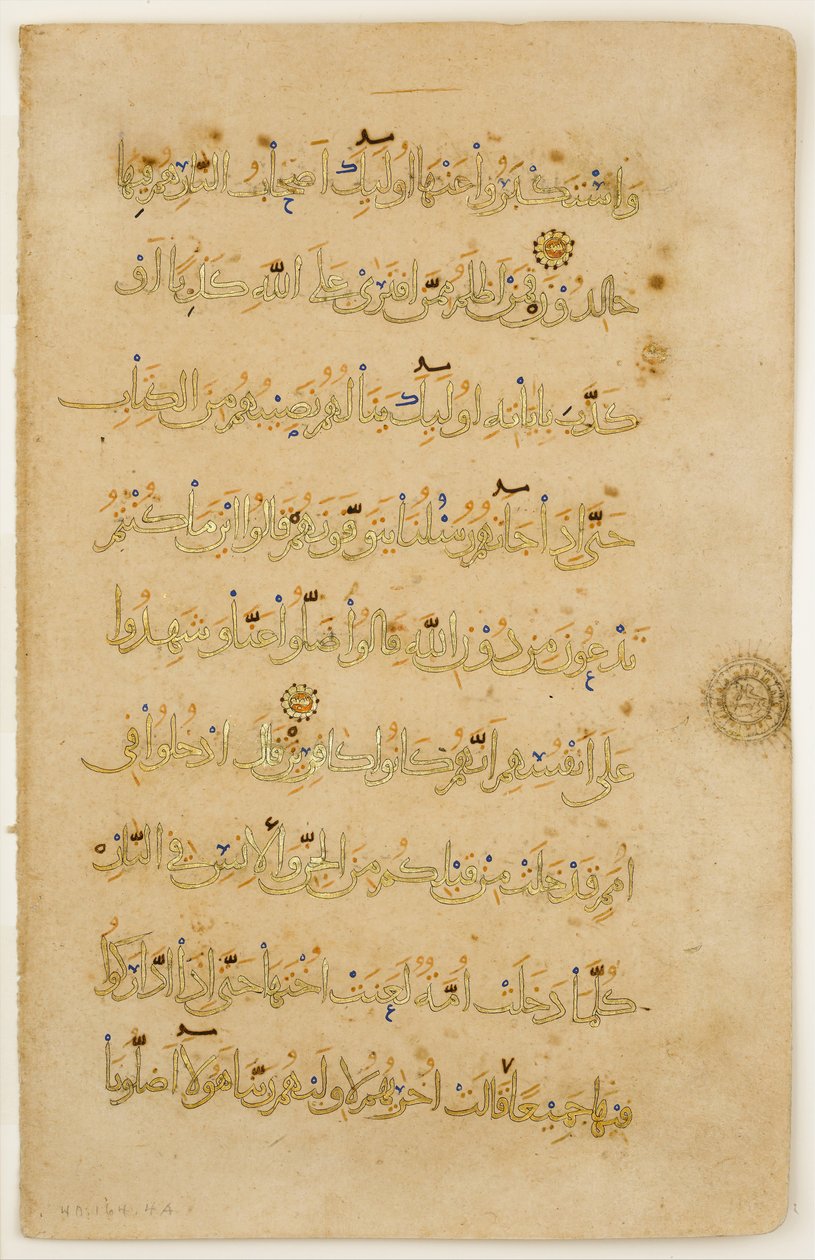 وَاسْتَكْبَرُوا عَنْهَا اُولَٰئِكَ اَصْحَابُ النَّارِ هُمْ فِيهَا
خَالِدُونَ فَمَنْ اَظْلَمُ مِمَّنِ افْتَرَىٰ عَلَى اللَّهِ كَذِبًا اَوْ
كَذَّبَ بِاٰيَاتِهِ اُولَٰئِكَ يَنَالُهُمْ نَصِيبُهُمْ مِنَ الْكِتَابِ
حَتَّىٰ اِذَا جَاءَتْهُمْ رُسُلُنَا يَتَوَفَّوْنَهُمْ قَالُوا اَيْنَ مَا كُنْتُمْ
تَدْعُونَ مِنْ دُونِ اللَّهِ قَالُوا ضَلُّوا عَنَّا وَشَهِدُوا
عَلَىٰ اَنْفُسِهِمْ اَنَّهُمْ كَانُوا كَافِرِينَ قَالَ ادْخُلُوا فِي
اُمَمٍ قَدْ خَلَتْ مِنْ قَبْلِكُمْ مِنَ الْجِنِّ وَالْاِنْسِ فِي النَّارِ
كُلَّمَا دَخَلَتْ اُمَّةٌ لَعَنَتْ اُخْتَهَا حَتَّىٰ اِذَا ادَّارَكُوا
فِيهَا جَمِيعًا قَالَتْ اُخْرٰيهُمْ لِاُولٰيهُمْ رَبَّنَا هٰؤُلَاءِ اَضَلُّونَا
W.164.4A